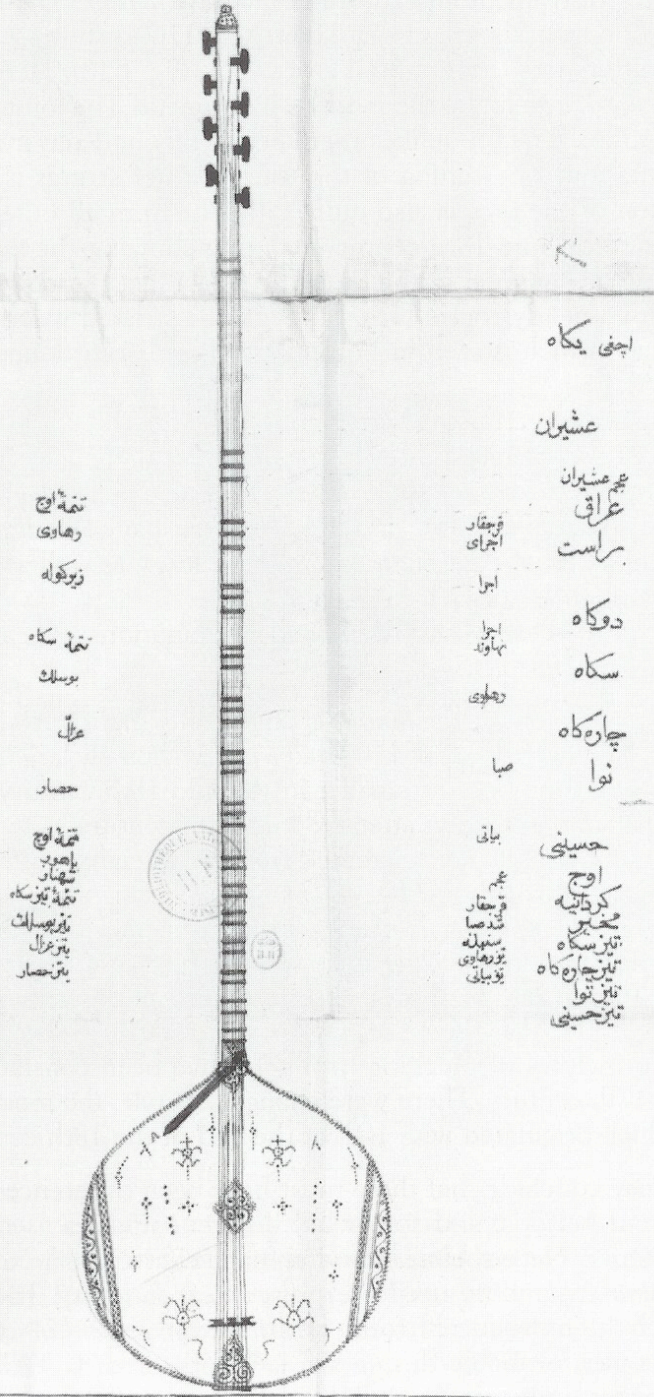 اچفی یکاه
عشیران
عجم عشیران
عراق
راست
دوکاه
سکاه
چارهکاه
نوا
حسینی
اوج
کردانیه
محیر
تیز سکاه
تیز چارهکاه
تیز نوا
تیز حسینی
قرجقار
اجرای
اجرا
اجرا
نهاوند
رهاوی
صبا
بیاتی
عجم
قرجقار
سنبله
تتمهٔ اوج
رهاوی
زیرکوله
تتمهٔ سکاه
بوسلك
عزّال
حصار
تتمهٔ اوج
ماهور
شهناز
تتمهٔ تیز سکاه
تیز بوسلك
تیز عزال
تیز حصار